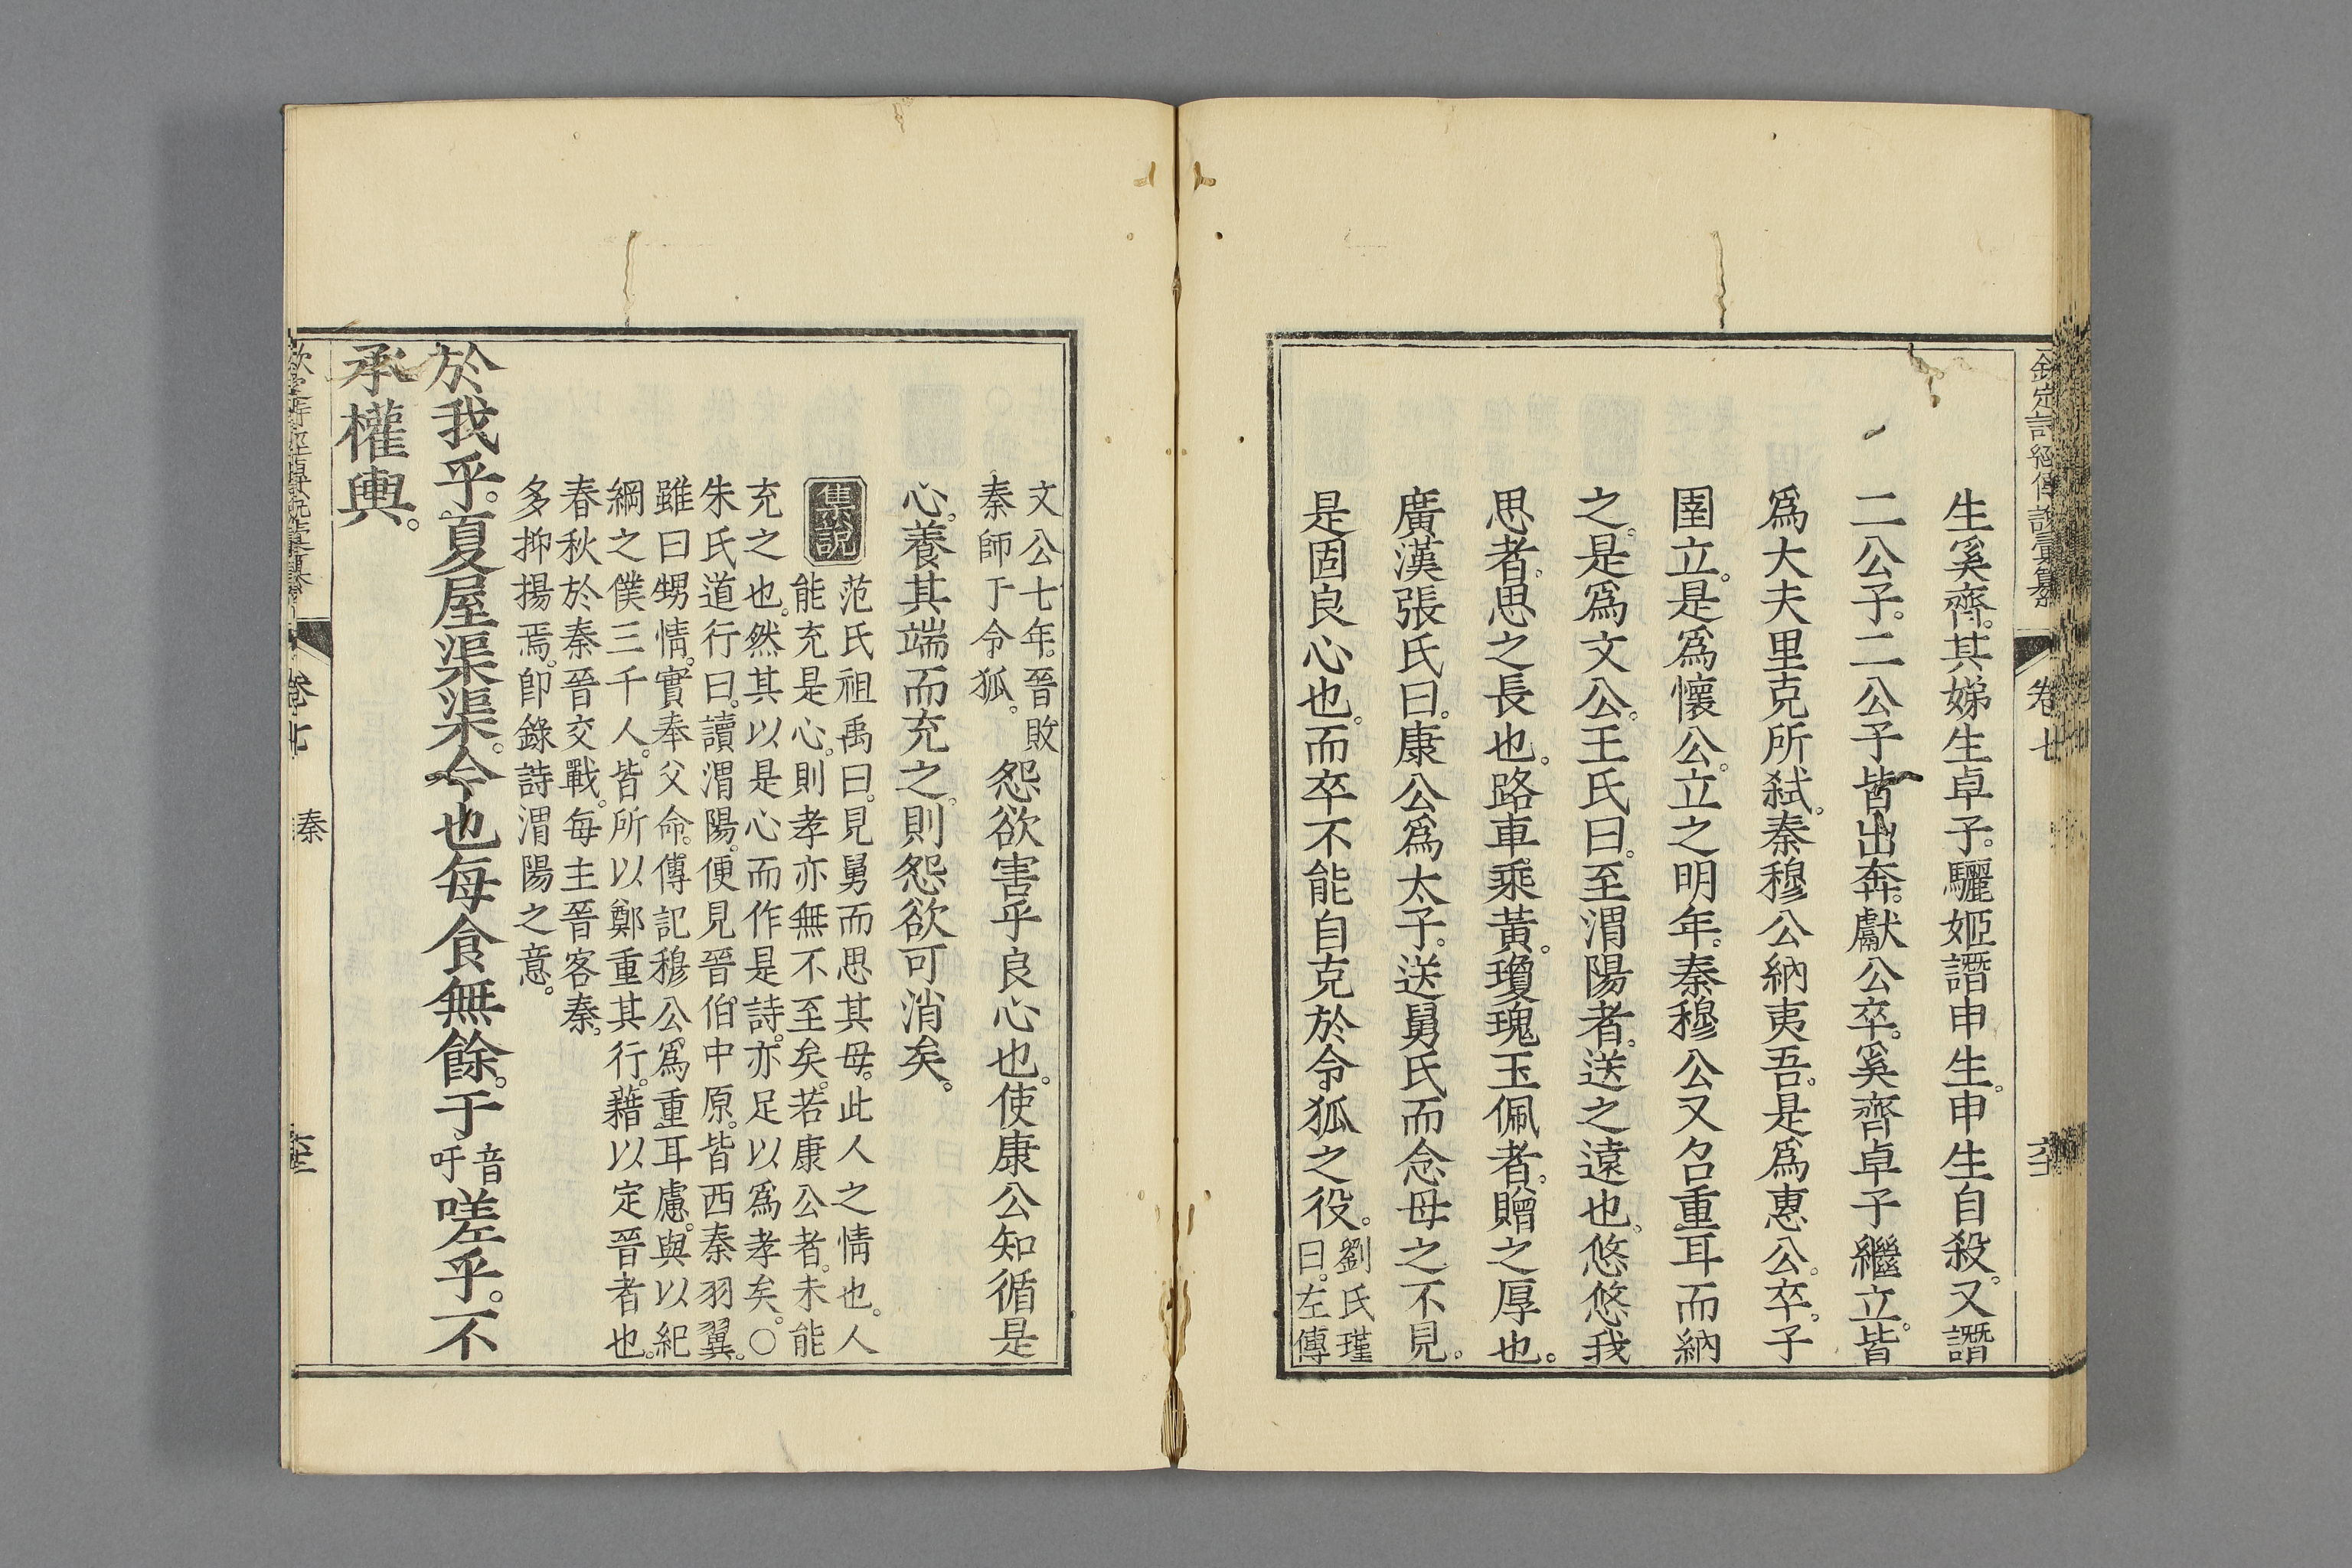 欽定詩經傳說彙纂 卷七
生奚齊。其娣生卓子。驪姬譖申生。申生自殺。又譖
二公子。二公子皆出奔。獻公卒。奚齊卓子繼立。皆
爲大夫里克所弒。秦穆公納夷吾。是爲惠公。卒。子
圉立。是爲懷公。立之明年。秦穆公又召重耳而納
之。是爲文公。王氏曰。至渭陽者。送之遠也。悠悠我
思者。思之長也。路車乘黃。瓊瑰玉佩者。贈之厚也。
廣漢張氏曰。康公爲太子。送舅氏而念母之不見。
是固良心也。而卒不能自克於令狐之役。劉氏瑾
曰。左傳
文公七年。晉敗
秦師于令狐。
怨欲害乎良心也。使康公知循是
心。養其端而充之。則怨欲可消矣。
集說
范氏祖禹曰。見舅而思其母。此人之情也。人
能充是心。則孝亦無不至矣。若康公者。未能
充之也。然其以是心而作是詩。亦足以爲孝矣。〇
朱氏道行曰。讀渭陽。便見晉伯中原。皆西秦羽翼。
雖曰甥情。實奉父命。傳記穆公爲重耳慮。與以紀
綱之僕三千人。皆所以鄭重其行。藉以定晉者也。
春秋於秦晉交戰。每主晉客秦。
多抑揚焉。卽錄詩渭陽之意。
於我乎。夏屋渠渠。今也每食無餘。于音
吁嗟乎。不
承權輿。
卷七 秦